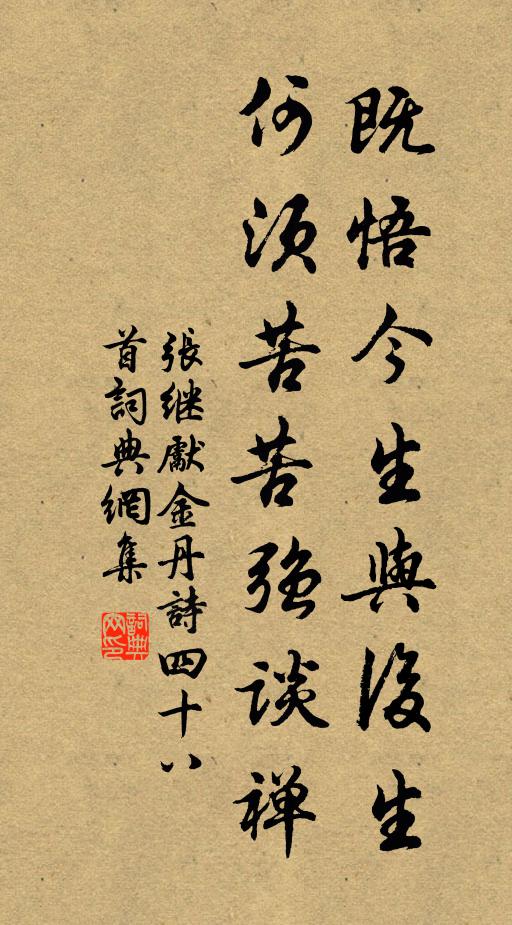 既悟今生與後生
何須苦苦強談禅
張继獻金丹詩四十八
首詞典網集
詞典
网印